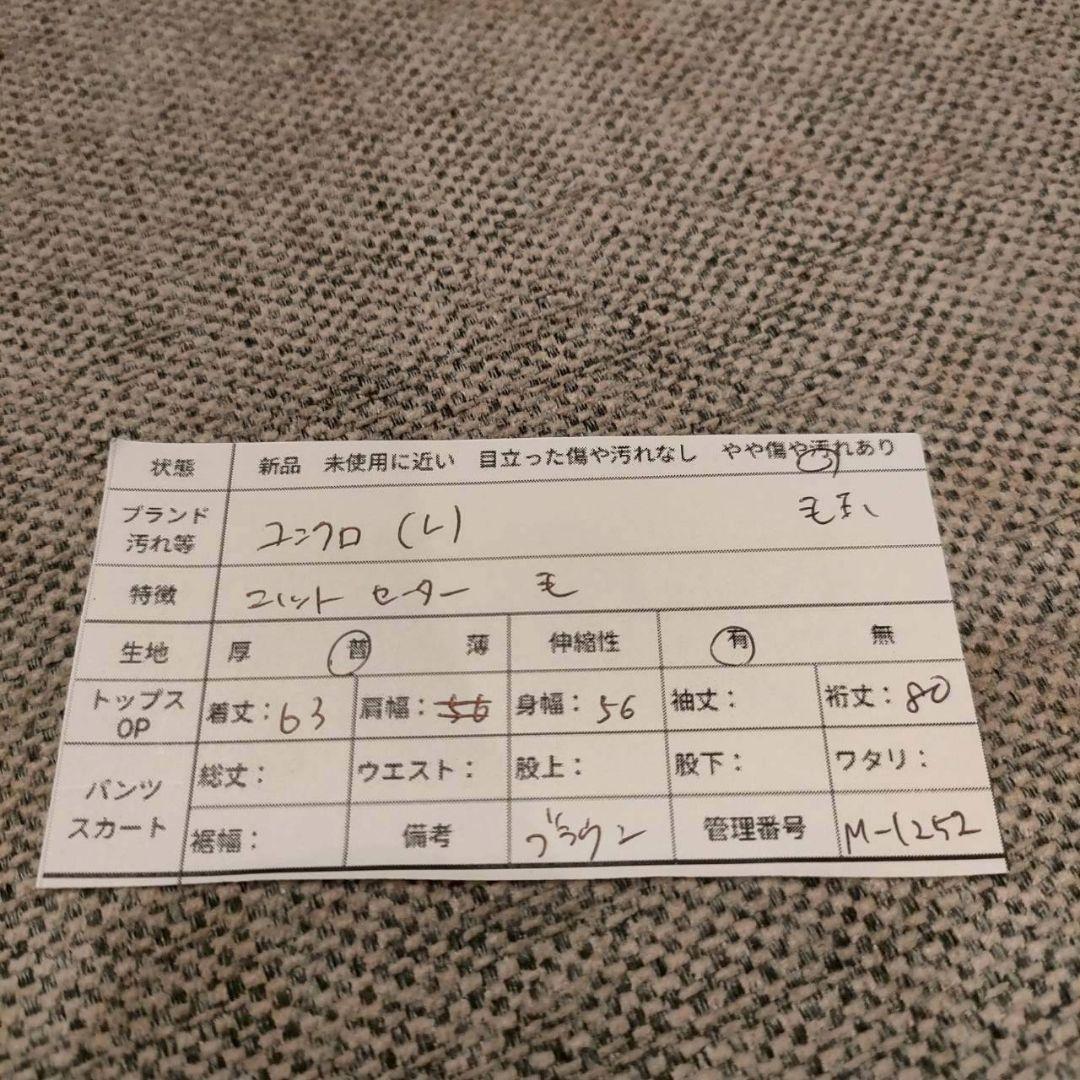 状態 新品 未使用に近い 目立った傷や汚れなし やや傷や汚れあり
ブランド
汚れ等 ユニクロ (L)
特徴 ニット セーター 毛
生地 厚 普 薄 伸縮性 有 無
トップス
OP 着丈:63 肩幅:56 身幅:56 袖丈: 裄丈:80
パンツ
スカート 総丈: ウエスト: 股上: 股下: ワタリ:
裾幅: 備考 ブラウン 管理番号 M-1252